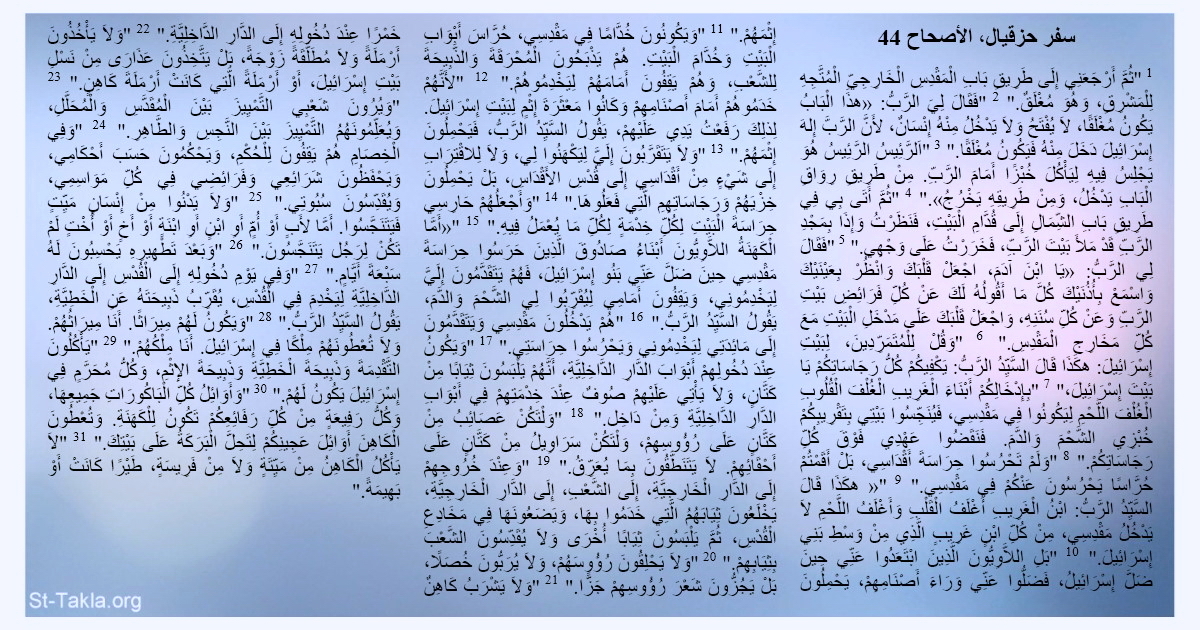 سفر حزقيال، الأصحاح 44
1 "ثُمَّ أَرْجَعَنِي إِلَى طَرِيقِ بَابِ الْمَقْدِسِ الْخَارِجِيِّ الْمُتَّجِهِ
لِلْمَشْرِقِ، وَهُوَ مُغْلَقٌ." 2 "فَقَالَ لِيَ الرَّبُّ: «هذَا الْبَابُ
يَكُونُ مُغْلَقًا، لاَ يُفْتَحُ وَلاَ يَدْخُلُ مِنْهُ إِنْسَانٌ، لأَنَّ الرَّبَّ إِلهَ
إِسْرَائِيلَ دَخَلَ مِنْهُ فَيَكُونُ مُغْلَقًا." 3 "اَلرَّئِيسُ الرَّئِيسُ هُوَ
يَجْلِسُ فِيهِ لِيَأْكُلَ خُبْزًا أَمَامَ الرَّبِّ. مِنْ طَرِيقِ رِوَاقِ
الْبَابِ يَدْخُلُ، وَمِنْ طَرِيقِهِ يَخْرُجُ»." 4 "ثُمَّ أَتَى بِي فِي
طَرِيقِ بَابِ الشِّمَالِ إِلَى قُدَّامِ الْبَيْتِ، فَنَظَرْتُ وَإِذَا بِمَجْدِ
الرَّبِّ قَدْ مَلأَ بَيْتَ الرَّبِّ، فَخَرَرْتُ عَلَى وَجْهِي." 5 "فَقَالَ
لِي الرَّبُّ: «يَا ابْنَ آدَمَ، اجْعَلْ قَلْبَكَ وَانْظُرْ بِعَيْنَيْكَ
وَاسْمَعْ بِأُذُنَيْكَ كُلَّ مَا أَقُولُهُ لَكَ عَنْ كُلِّ فَرَائِضِ بَيْتِ
الرَّبِّ وَعَنْ كُلِّ سُنَنِهِ، وَاجْعَلْ قَلْبَكَ عَلَى مَدْخَلِ الْبَيْتِ مَعَ
كُلِّ مَخَارِجِ الْمَقْدِسِ." 6 "وَقُلْ لِلْمُتَمَرِّدِينَ، لِبَيْتِ
إِسْرَائِيلَ: هكَذَا قَالَ السَّيِّدُ الرَّبُّ: يَكْفِيكُمْ كُلُّ رَجَاسَاتِكُمْ يَا
بَيْتَ إِسْرَائِيلَ،" 7 "بِإِدْخَالِكُمْ أَبْنَاءَ الْغَرِيبِ الْغُلْفَ الْقُلُوبِ
الْغُلْفَ اللَّحْمِ لِيَكُونُوا فِي مَقْدِسِي، فَيُنَجِّسُوا بَيْتِي بِتَقْرِيبِكُمْ
خُبْزِي الشَّحْمَ وَالدَّمَ. فَنَقَضُوا عَهْدِي فَوْقَ كُلِّ
رَجَاسَاتِكُمْ." 8 "وَلَمْ تَحْرُسُوا حِرَاسَةَ أَقْدَاسِي، بَلْ أَقَمْتُمْ
حُرَّاسًا يَحْرُسُونَ عَنْكُمْ فِي مَقْدِسِي." 9 "« هكَذَا قَالَ
السَّيِّدُ الرَّبُّ: ابْنُ الْغَرِيبِ أَغْلَفُ الْقَلْبِ وَأَغْلَفُ اللَّحْمِ لاَ
يَدْخُلُ مَقْدِسِي، مِنْ كُلِّ ابْنٍ غَرِيبٍ الَّذِي مِنْ وَسْطِ بَنِي
إِسْرَائِيلَ." 10 "بَلِ اللاَّوِيُّونَ الَّذِينَ ابْتَعَدُوا عَنِّي حِينَ
ضَلَّ إِسْرَائِيلُ، فَضَلُّوا عَنِّي وَرَاءَ أَصْنَامِهِمْ، يَحْمِلُونَ
إِثْمَهُمْ." 11 "وَيَكُونُونَ خُدَّامًا فِي مَقْدِسِي، حُرَّاسَ أَبْوَابِ
الْبَيْتِ وَخُدَّامَ الْبَيْتِ. هُمْ يَذْبَحُونَ الْمُحْرَقَةَ وَالذَّبِيحَةَ
لِلشَّعْبِ، وَهُمْ يَقِفُونَ أَمَامَهُمْ لِيَخْدِمُوهُمْ." 12 "لأَنَّهُمْ
خَدَمُوهُمْ أَمَامَ أَصْنَامِهِمْ وَكَانُوا مَعْثَرَةَ إِثْمٍ لِبَيْتِ إِسْرَائِيلَ.
لِذلِكَ رَفَعْتُ يَدِي عَلَيْهِمْ، يَقُولُ السَّيِّدُ الرَّبُّ، فَيَحْمِلُونَ
إِثْمَهُمْ." 13 "وَلاَ يَتَقَرَّبُونَ إِلَيَّ لِيَكْهَنُوا لِي، وَلاَ لِلاقْتِرَابِ
إِلَى شَيْءٍ مِنْ أَقْدَاسِي إِلَى قُدْسِ الأَقْدَاسِ، بَلْ يَحْمِلُونَ
خِزْيَهُمْ وَرَجَاسَاتِهِمِ الَّتِي فَعَلُوهَا." 14 "وَأَجْعَلُهُمْ حَارِسِي
حِرَاسَةَ الْبَيْتِ لِكُلِّ خِدْمَةٍ لِكُلِّ مَا يُعْمَلُ فِيهِ." 15 "«أَمَّا
الْكَهَنَةُ اللاَّوِيُّونَ أَبْنَاءُ صَادُوقَ الَّذِينَ حَرَسُوا حِرَاسَةَ
مَقْدِسِي حِينَ ضَلَّ عَنِّي بَنُو إِسْرَائِيلَ، فَهُمْ يَتَقَدَّمُونَ إِلَيَّ
لِيَخْدِمُونِي، وَيَقِفُونَ أَمَامِي لِيُقَرِّبُوا لِي الشَّحْمَ وَالدَّمَ،
يَقُولُ السَّيِّدُ الرَّبُّ." 16 "هُمْ يَدْخُلُونَ مَقْدِسِي وَيَتَقَدَّمُونَ
إِلَى مَائِدَتِي لِيَخْدِمُونِي وَيَحْرُسُوا حِرَاسَتِي." 17 "وَيَكُونُ
عِنْدَ دُخُولِهِمْ أَبْوَابَ الدَّارِ الدَّاخِلِيَّةِ، أَنَّهُمْ يَلْبَسُونَ ثِيَابًا مِنْ
كَتَّانٍ، وَلاَ يَأْتِي عَلَيْهِمْ صُوفٌ عِنْدَ خِدْمَتِهِمْ فِي أَبْوَابِ
الدَّارِ الدَّاخِلِيَّةِ وَمِنْ دَاخِل." 18 "وَلْتَكُنْ عَصَائِبُ مِنْ
كَتَّانٍ عَلَى رُؤُوسِهِمْ، وَلْتَكُنْ سَرَاوِيلُ مِنْ كَتَّانٍ عَلَى
أَحْقَائِهِمْ. لاَ يَتَنَطَّقُونَ بِمَا يُعَرِّقُ." 19 "وَعِنْدَ خُرُوجِهِمْ
إِلَى الدَّارِ الْخَارِجِيَّةِ، إِلَى الشَّعْبِ، إِلَى الدَّارِ الْخَارِجِيَّةِ،
يَخْلَعُونَ ثِيَابَهُمُ الَّتِي خَدَمُوا بِهَا، وَيَضَعُونَهَا فِي مَخَادِعِ
الْقُدْسِ، ثُمَّ يَلْبَسُونَ ثِيَابًا أُخْرَى وَلاَ يُقَدِّسُونَ الشَّعْبَ
بِثِيَابِهِمْ." 20 "وَلاَ يَحْلِقُونَ رُؤُوسَهُمْ، وَلاَ يُرَبُّونَ خُصَلاً،
بَلْ يَجُزُّونَ شَعْرَ رُؤُوسِهِمْ جَزًّا." 21 "وَلاَ يَشْرَبُ كَاهِنٌ
خَمْرًا عِنْدَ دُخُولِهِ إِلَى الدَّارِ الدَّاخِلِيَّةِ." 22 "وَلاَ يَأْخُذُونَ
أَرْمَلَةً وَلاَ مُطَلَّقَةً زَوْجَةً، بَلْ يَتَّخِذُونَ عَذَارَى مِنْ نَسْلِ
بَيْتِ إِسْرَائِيلَ، أَوْ أَرْمَلَةً الَّتِي كَانَتْ أَرْمَلَةَ كَاهِنٍ." 23
"وَيُرُونَ شَعْبِي التَّمْيِيزَ بَيْنَ الْمُقَدَّسِ وَالْمُحَلَّلِ،
وَيُعَلِّمُونَهُمُ التَّمْيِيزَ بَيْنَ النَّجِسِ وَالطَّاهِرِ." 24 "وَفِي
الْخِصَامِ هُمْ يَقِفُونَ لِلْحُكْمِ، وَيَحْكُمُونَ حَسَبَ أَحْكَامِي،
وَيَحْفَظُونَ شَرَائِعِي وَفَرَائِضِي فِي كُلِّ مَوَاسِمِي،
وَيُقَدِّسُونَ سُبُوتِي." 25 "وَلاَ يَدْنُوا مِنْ إِنْسَانٍ مَيِّتٍ
فَيَتَنَجَّسُوا. أَمَّا لأَبٍ أَوْ أُمٍّ أَوِ ابْنٍ أَوِ ابْنَةٍ أَوْ أَخٍ أَوْ أُخْتٍ لَمْ
تَكُنْ لِرَجُل يَتَنَجَّسُونَ." 26 "وَبَعْدَ تَطْهِيرِهِ يَحْسِبُونَ لَهُ
سَبْعَةَ أَيَّامٍ." 27 "وَفِي يَوْمِ دُخُولِهِ إِلَى الْقُدْسِ إِلَى الدَّارِ
الدَّاخِلِيَّةِ لِيَخْدِمَ فِي الْقُدْسِ، يُقَرِّبُ ذَبِيحَتَهُ عَنِ الْخَطِيَّةِ،
يَقُولُ السَّيِّدُ الرَّبُّ." 28 "وَيَكُونُ لَهُمْ مِيرَاثًا. أَنَا مِيرَاثُهُمْ.
وَلاَ تُعْطُونَهُمْ مِلْكًا فِي إِسْرَائِيلَ. أَنَا مِلْكُهُمْ." 29 "يَأْكُلُونَ
التَّقْدِمَةَ وَذَبِيحَةَ الْخَطِيَّةِ وَذَبِيحَةَ الإِثْمِ، وَكُلُّ مُحَرَّمٍ فِي
إِسْرَائِيلَ يَكُونُ لَهُمْ." 30 "وَأَوَائِلُ كُلِّ الْبَاكُورَاتِ جَمِيعِهَا،
وَكُلُّ رَفِيعَةٍ مِنْ كُلِّ رَفَائِعِكُمْ تَكُونُ لِلْكَهَنَةِ. وَتُعْطُونَ
الْكَاهِنَ أَوَائِلَ عَجِينِكُمْ لِتَحِلَّ الْبَرَكَةُ عَلَى بَيْتِكَ." 31 "لاَ
يَأْكُلُ الْكَاهِنُ مِنْ مَيِّتَةٍ وَلاَ مِنْ فَرِيسَةٍ، طَيْرًا كَانَتْ أَوْ
بَهِيمَةً."
St-Takla.org